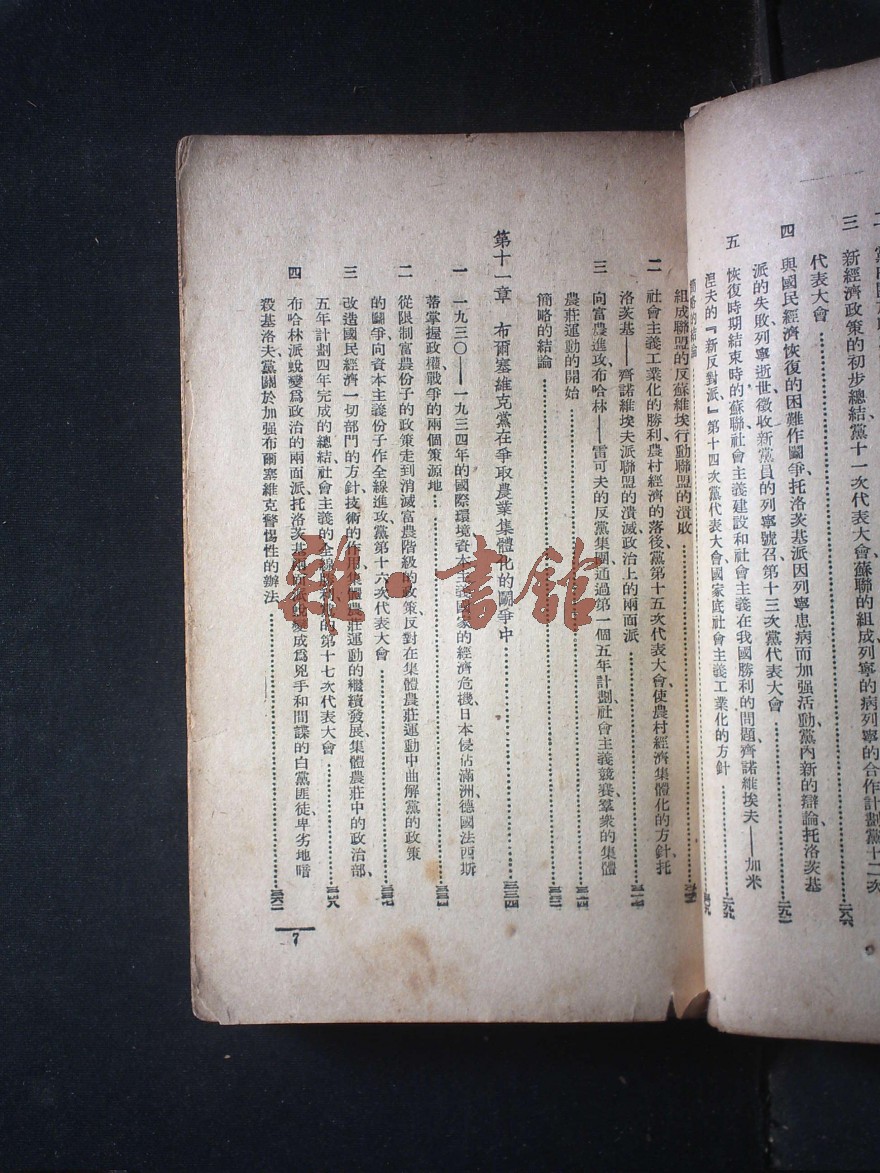 三 新經濟政策的初步總結、黨十一次代表大會、蘇聯的組成、列寧的病、列寧的合作計劃、黨十二次
代表大會……二六六
四 與國民經濟恢復的困難作鬭爭、托洛茨基派因列寧患病而加强活動、黨內新的辯論、托洛茨基
派的失敗、列寧逝世、徵收新黨員的列寧號召、第十三次黨代表大會
五 恢復時期結束時的蘇聯、社會主義建設和社會主義在我國勝利的問題、齊諾維埃夫——加米
湼夫的『新反對派』、第十四次黨代表大會、國家底社會主義工業化的方針
簡略的結論
組成聯盟的反蘇維埃行動、聯盟的潰敗
二 社會主義工業化的勝利、農村經濟的落後、黨第十五次代表大會、使農村經濟集體化的方針、托
洛茨基——齊諾維埃夫派聯盟的潰滅、政治上的兩面派
三 向富農進攻、布哈林——雷可夫的反黨集團、通過第一個五年計劃、社會主義競賽、羣衆的集體
農莊運動的開始
簡略的結論
第十一章 布爾塞維克黨在爭取農業集體化的鬭爭中……三三四
一 一九三〇——一九三四年的國際環境、資本主義國家的經濟危機、日本侵佔滿洲、德國法西斯
蒂掌握政權、戰爭的兩個策源地
二 從限制富農份子的政策走到消滅富農階級的政策、反對在集體農莊運動中曲解黨的政策
的鬭爭、向資本主義份子作全線進攻、黨第十六次代表大會
三 改造國民經濟一切部門的方針、技術的作用、集體農莊運動的繼續發展、集體農莊中的政治部、
五年計劃四年完成的總結、社會主義的全線勝利、黨的第十七次代表大會
四 布哈林派蛻變爲政治的兩面派、托洛茨基兩面派蛻變成爲兇手和間諜的白黨匪徒、卑劣地暗
殺基洛夫、黨關於加强布爾塞維克警惕性的辦法
7
書舘